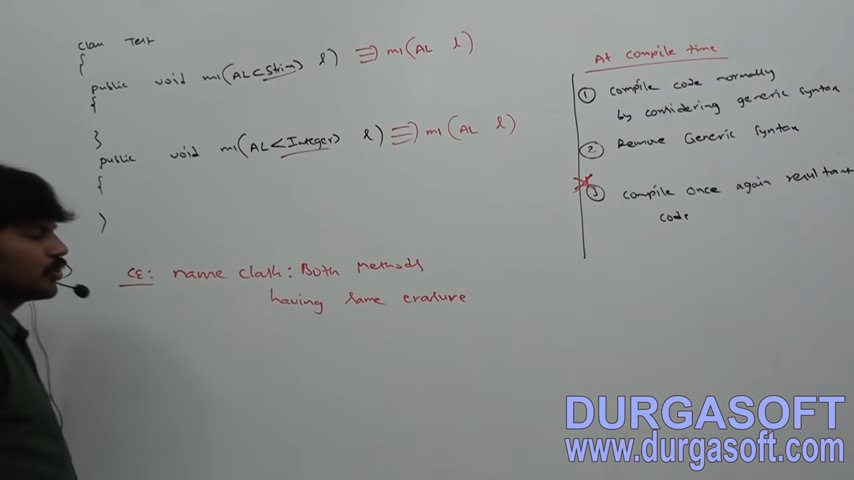 class Test
{
public void m1(AL<String> l) ≡) m1(AL l)
{
}
public void m1(AL<Integer> l) ≡) m1(AL l)
{
}
CE: name clash: Both methods
having same erasure
At compile time
① compile code normally
by considering generic syntax
② Remove Generic syntax
③ compile once again resultant
code
DURGASOFT
www.durgasoft.com